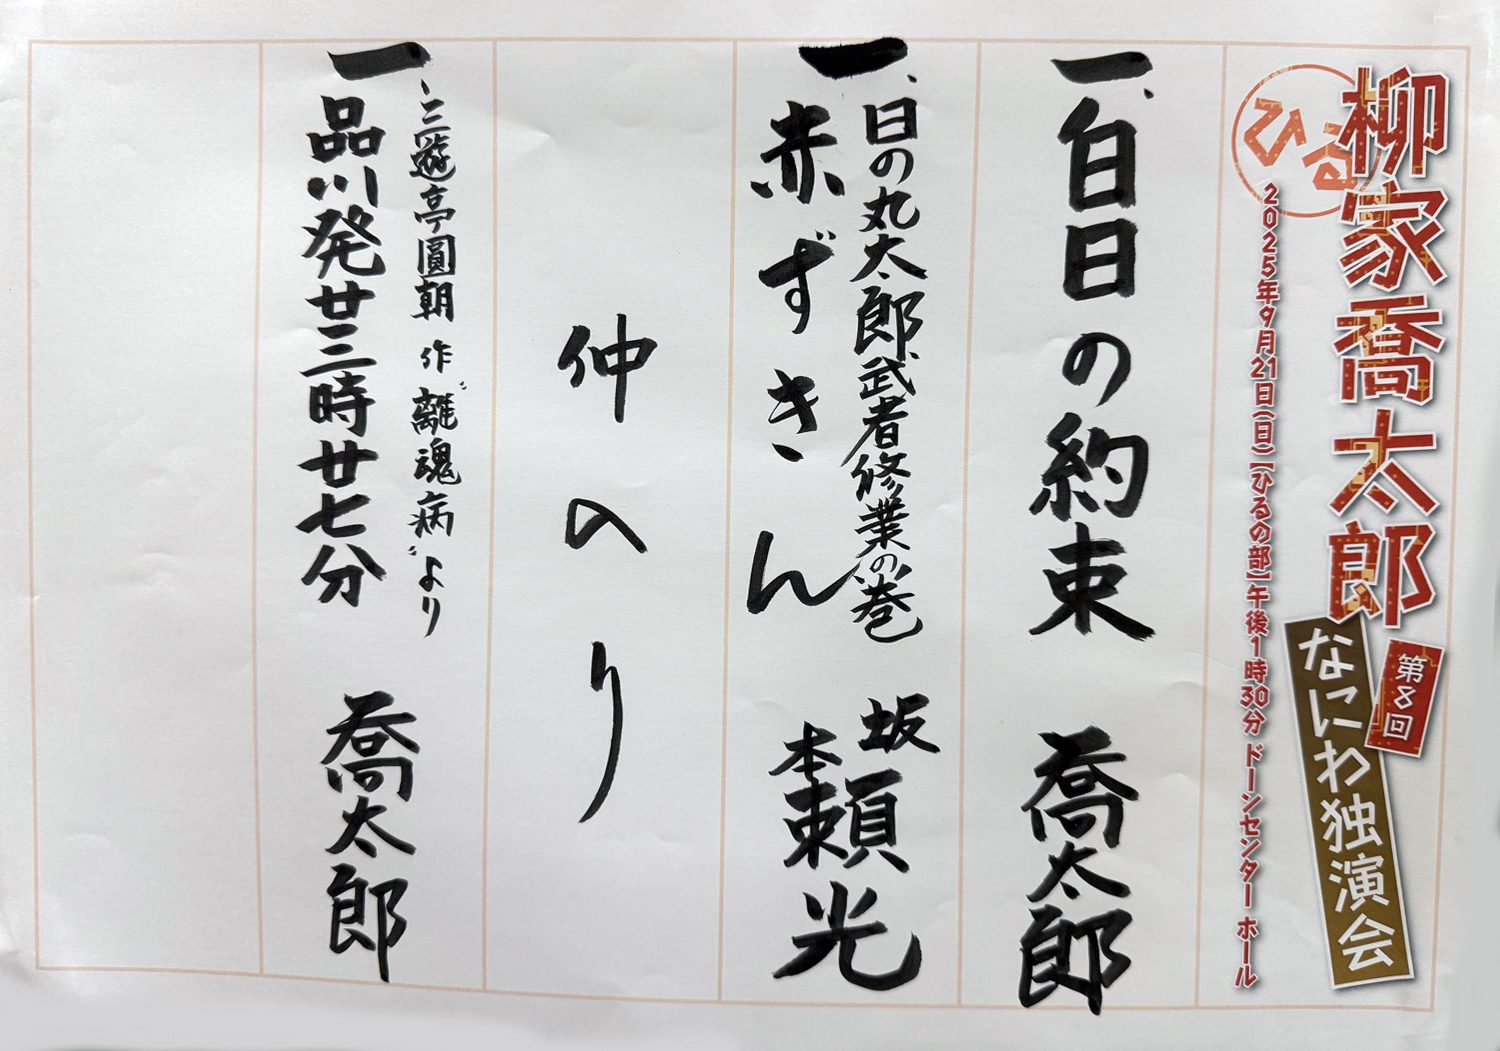 柳家喬太郎
第8回
なにわ独演会
ひる
2025年9月21日(日)【ひるの部】午後1時30分 ドーンセンター ホール
一、白日の約束 喬太郎
一、日の丸太郎武者修業の巻
赤ずきん
坂本頼光
仲のり
一、三遊亭圓朝 作 〝離魂病〟より
品川発廿三時廿七分 喬太郎